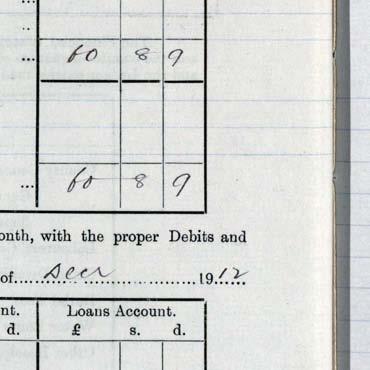 ... 60 8 9
... 60 8 9
onth, with the proper Debits and
of.....Decr.....1912
nt. Loans Account.
d. £ s. d.